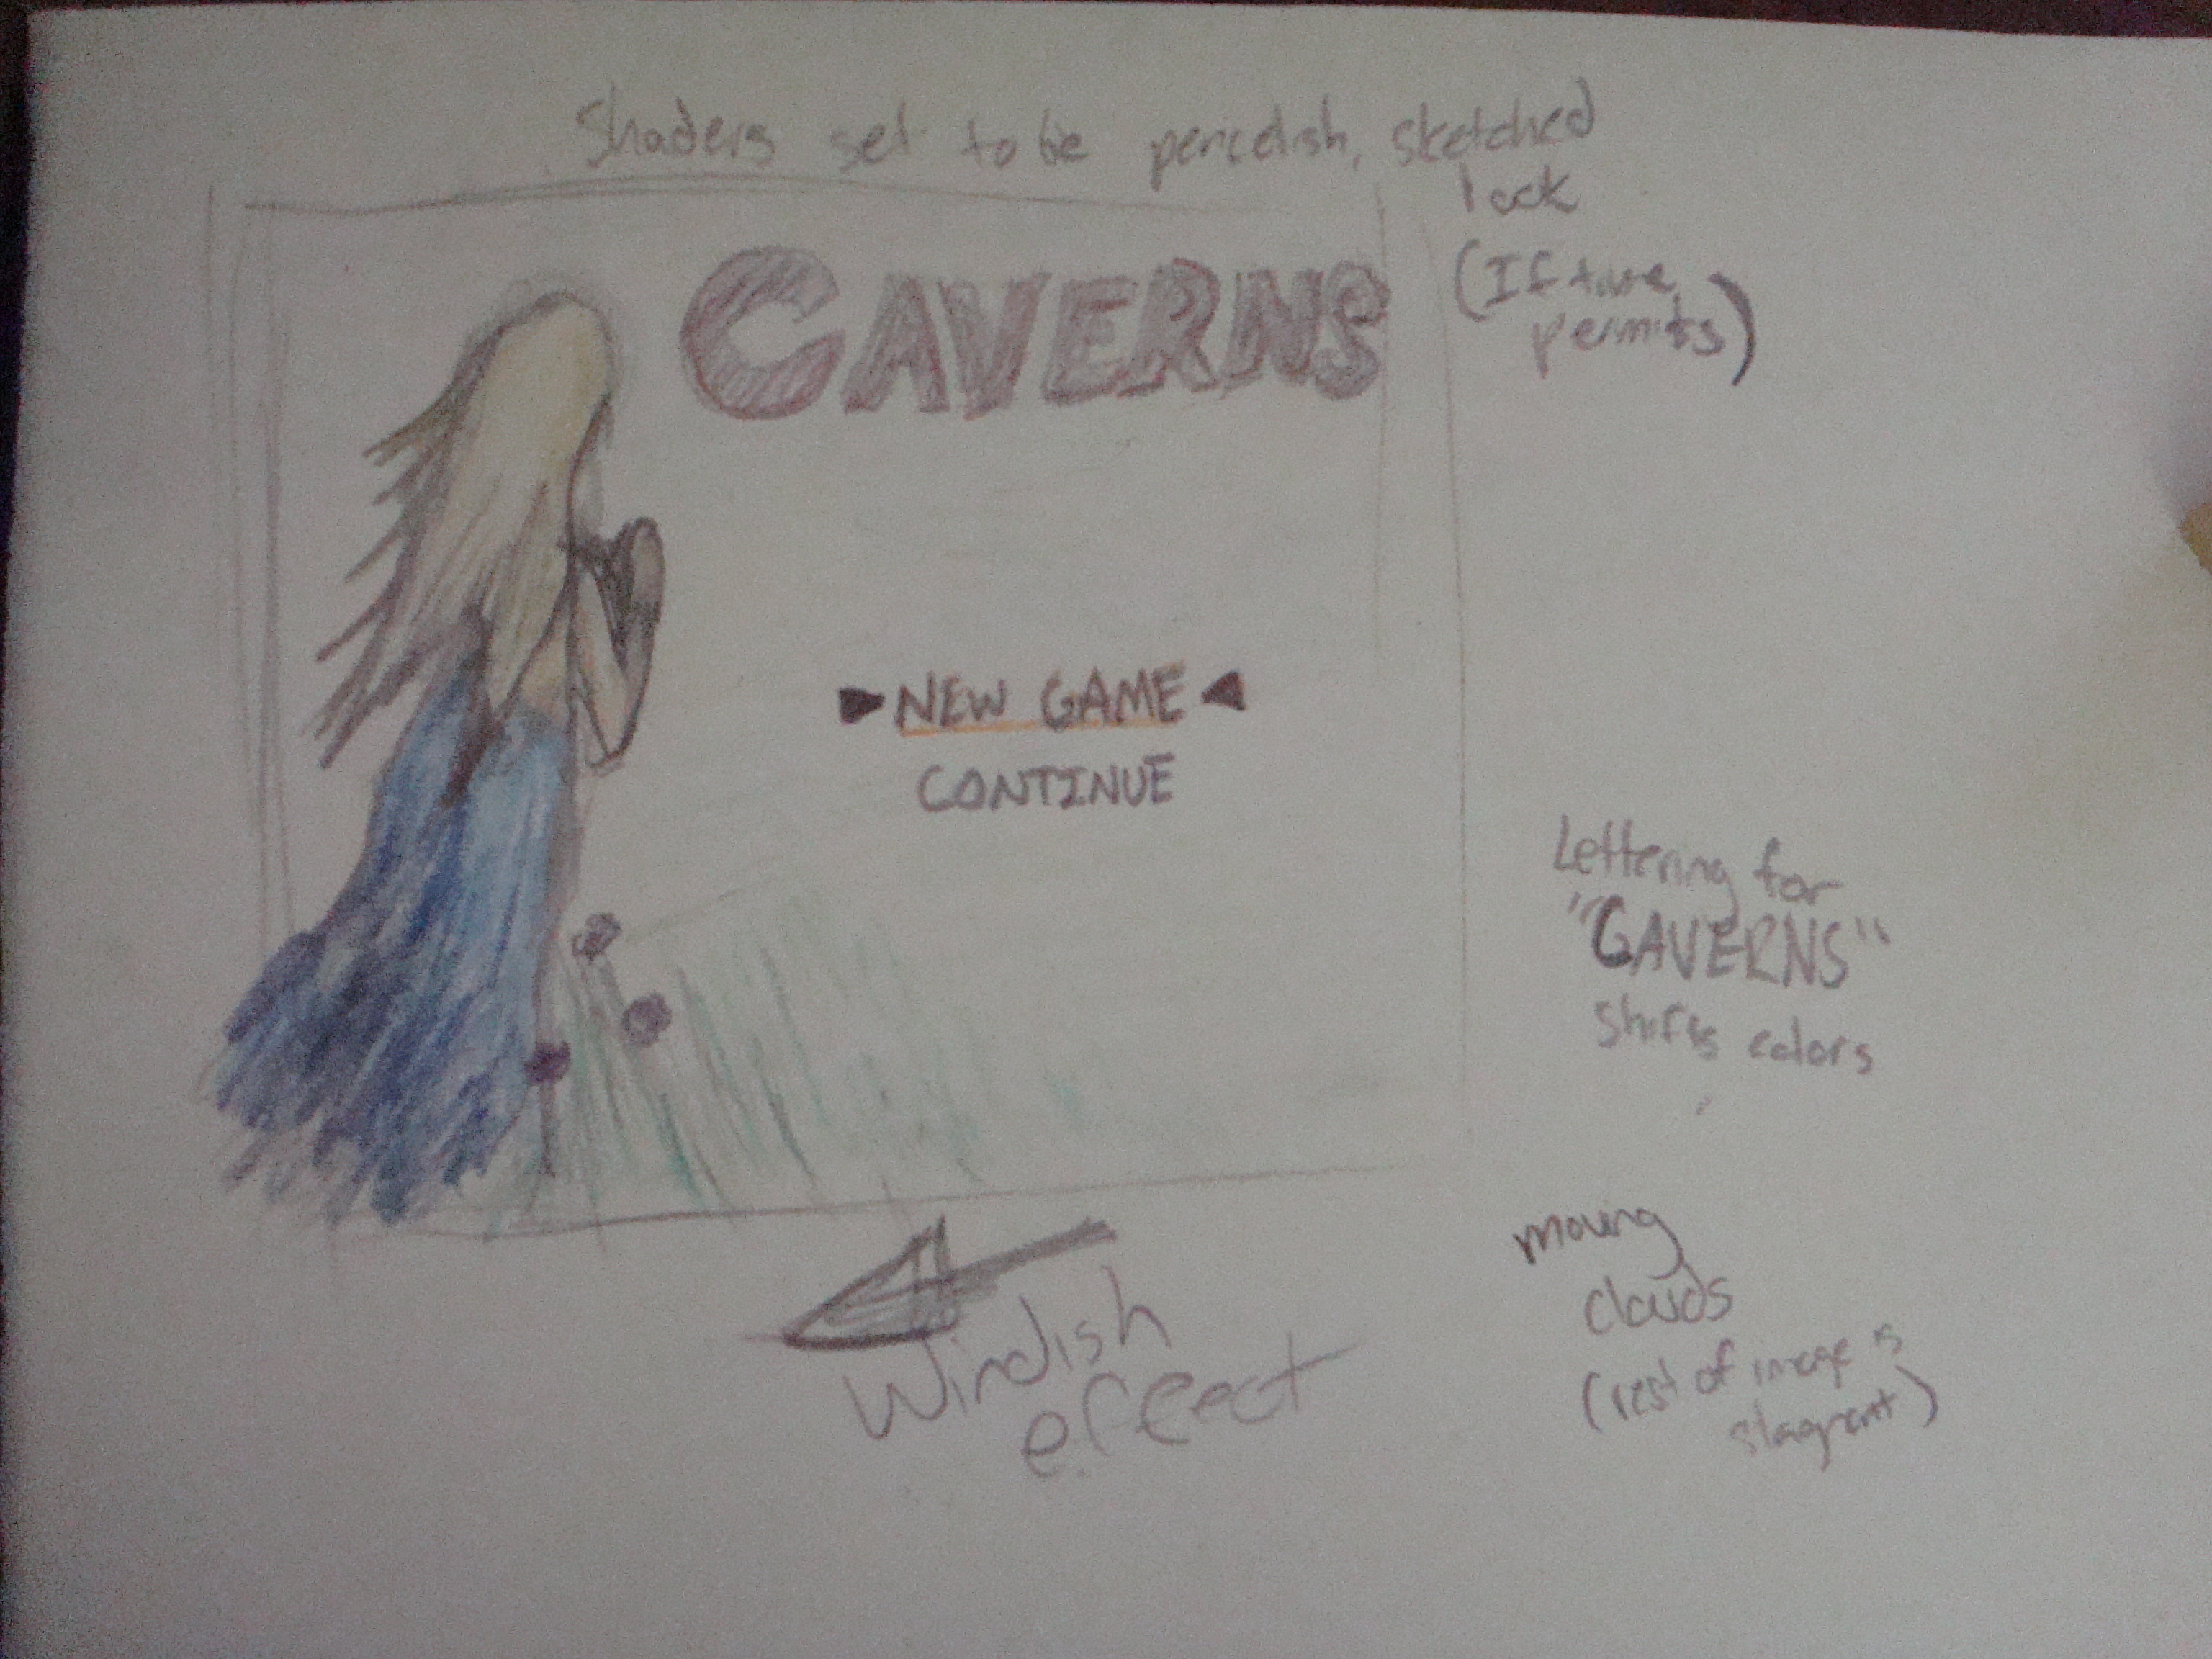 Shaders set to be pencilish, sketched
look
(If time
permits)
CAVERNS
NEW GAME
CONTINUE
Lettering for
"CAVERNS"
shifts colors
moving
clouds
(rest of image is
stagnant)
Windish
effect